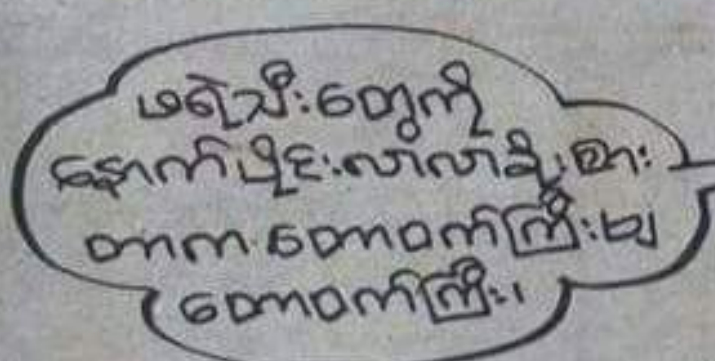 ဖရဲသီးတွေကို
နောက်ပိုင်းလာလာခိုးစား
တာက တောဝက်ကြီးဗျ
တောဝက်ကြီး၊